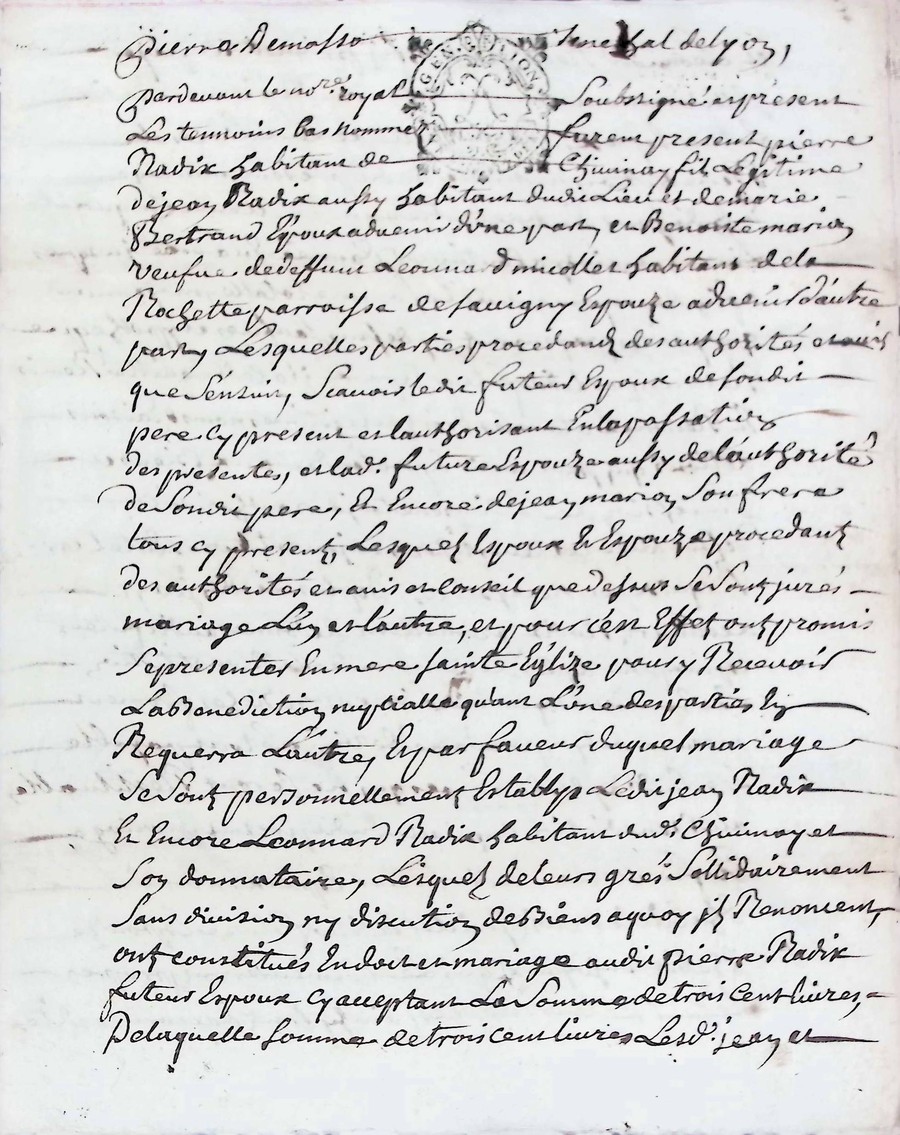 Pierre Demasso Senechal de Lyon,
Pardevant le nore. royal Soubsigné et present
Les temoins bas nommez furent present pierre
Radix habitant de Chivinay fils Legitime
de jean Radix aussy habitant dudit Lieu et de marie
Bertrand Epoux advenir d'une part, et Benoiste marion
veufue de deffunt Leonnard micollet habitant de la
Rochette parroisse de Savigny Espouze advenir d'autre
part, Lesquelles parties procedant des authorités et avis
que S'ensuit, Scavoir ledit futeur Espoux de sondit
pere cy present et lauthorisant En la passation
des presentes, et lad. future Espouze aussy de l'authorité
de Sondit pere, Et Encore de jean marion Son frere
tous cy present, Lesquels Espoux Et Espouze procedant
des authorités et avis et conseil que dessus Se Sont jurés
mariage L'un et L'autre, et pour c'est Effet ont promis
Se presenter En mere Sainte Eglize pour y Recevoir
La Benediction nuptialle quant L'une des parties En
Requerra L'autre, Et par faveur duquel mariage
Se Sont personnellement Establys Ledit jean Radix
Et Encore Leonnard Radix habitant dud. Chivinay et
Son donnataire, Lesquels de leurs grés Sollidairement
Sans division ny discution de Biens a quoy ils Renoncent,
ont constitués En dot et mariage audit pierre Radix
futeur Espoux cy acceptant La Somme de trois cent livres,
De laquelle somme de trois cent livres Lesd. jean et
GEN. LYON